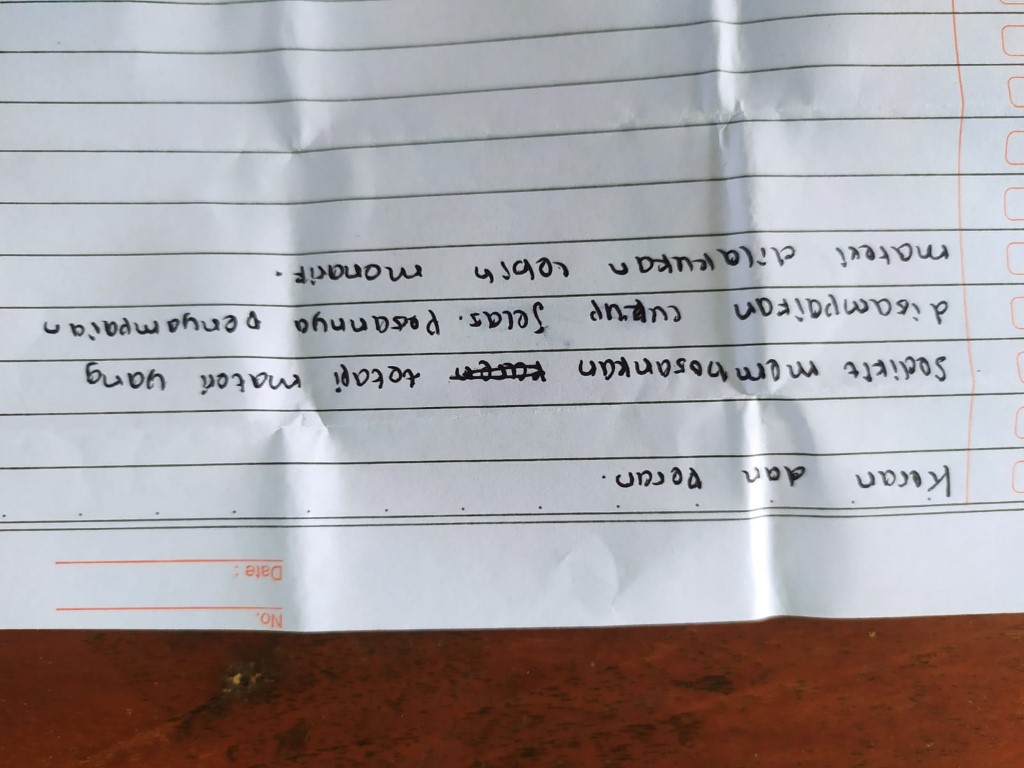 No.
Date :
Kesan dan Pesan.
Sedikit membosankan tetapi materi yang
disampaikan cukup jelas. Pesannya Penyampaian
materi dilakukan lebih menarik.